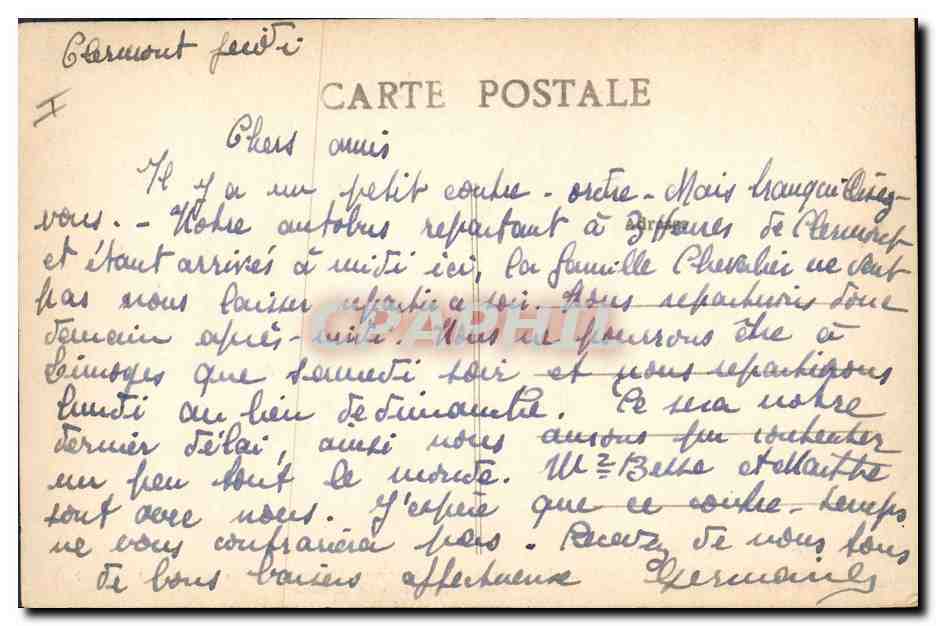 Clermont jeudi
I
CARTE POSTALE
Chers amis
Il y a un petit contre-ordre - Mais tranquillisez-
vous. - Notre autobus repartant à 3 heures de Clermont
et étant arrivés à midi ici, la famille Chevalier ne veut
pas nous laisser repartir ce soir. Nous repartirons donc
demain après-midi. Nous ne pourrons être à
Limoges que samedi soir et nous repartirons
lundi au lieu de dimanche. Ce sera notre
dernier délai, ainsi nous aurons pu contenter
un peu tout le monde. Mr Besse et
sont avec nous. J'espère que ce contre-temps
ne vous contrariera pas. Recevez de nous tous
de bons baisers affectueux Germaine
CPAPHIL